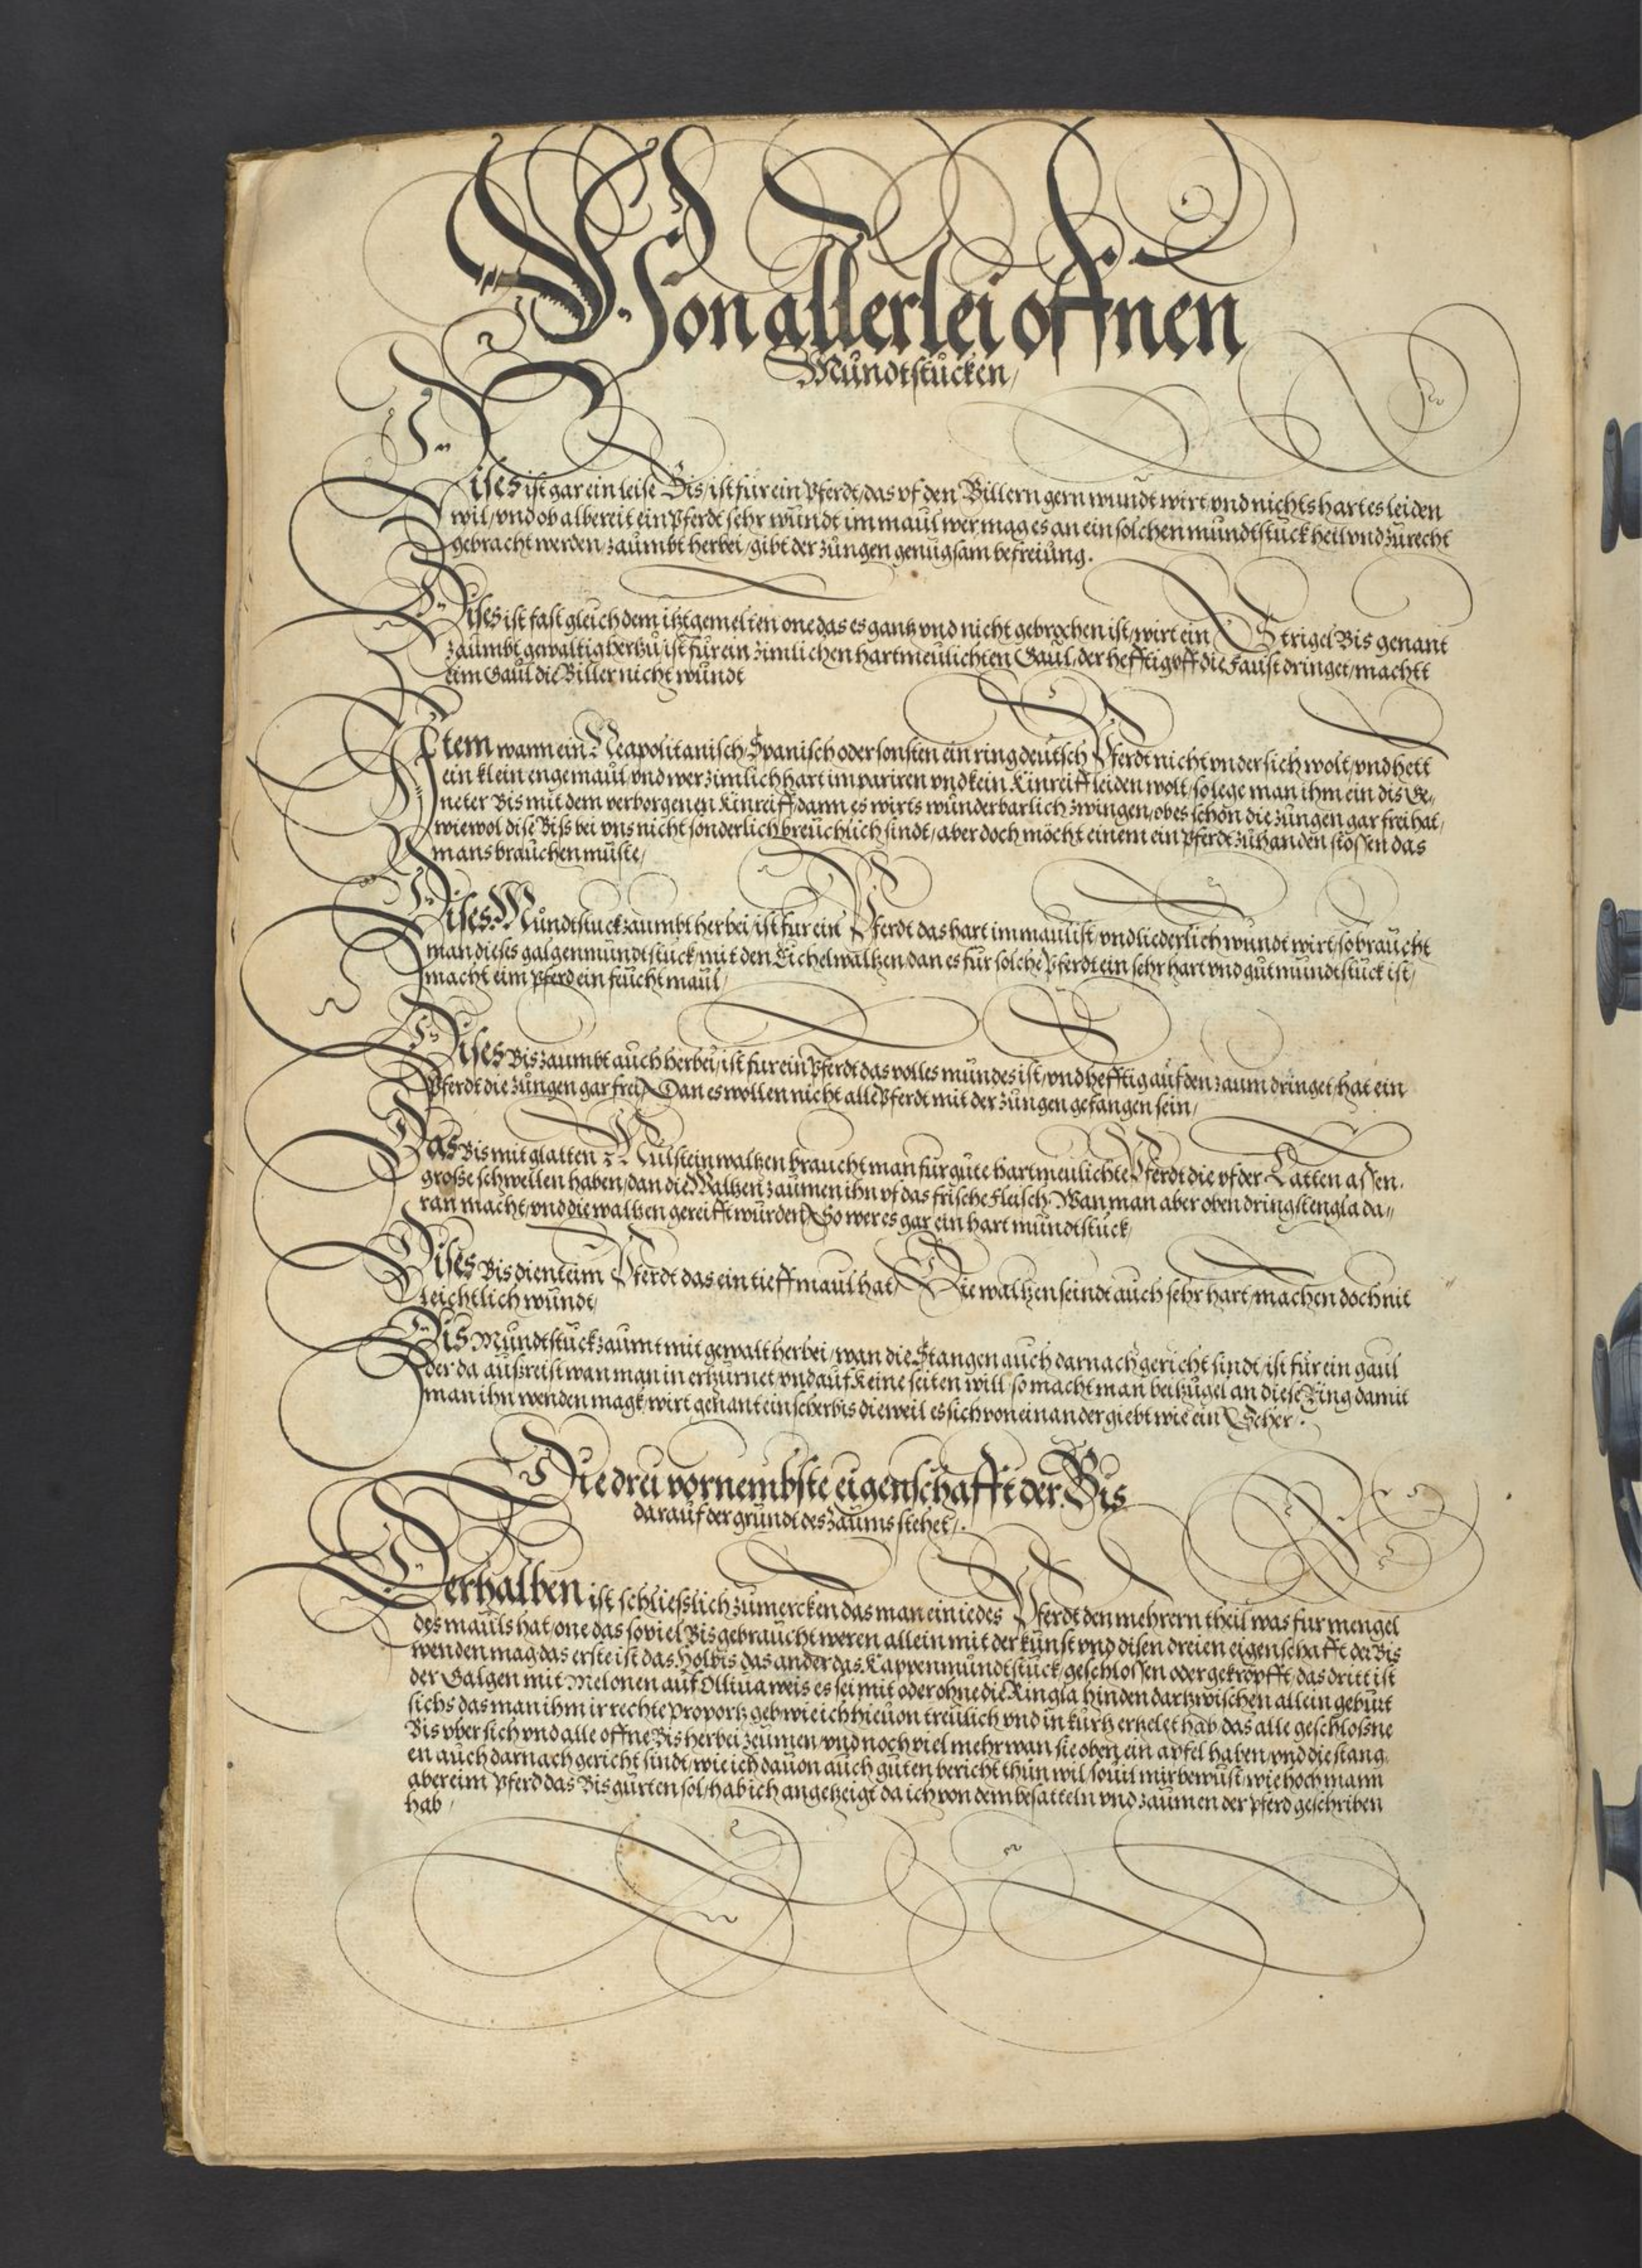 Von allerlei offnen
Mundtstucken/
Dises ist gar ein leise Bis/ist für ein Pferdt/das vf den Billern gern wundt wirt vnd nichts hartes leiden
wil/vnd ob albereit ein Pferdt sehr wundt im maul wer mag es an ein solchen mundtstuck heil vnd zurecht
gebracht werden/zaumbt herbei/gibt der zungen genugsam befreiung.
Dises ist fast gleich dem itzt gemelten one das es gantz vnd nicht gebrochen ist/wirt ein Strigel Bis genant
zaumbt gewaltig hertzu/ist für ein zimlichen hartmeulichten Gaul/der hefftig vff die Faust dringet/machtt
eim Gaul die Biller nicht wundt
Item wann ein Neapolitanisch/Spanisch oder sonsten ein ring deutsch Pferdt nicht vnder sich wolt/vnd hett
ein klein enge maul/vnd wer zimlich hart im pariren vnd kein Kinreiff leiden wolt/so lege man ihm ein dis Ge„
neter Bis mit dem verborgenen Kinreiff/dann es wirts wunderbarlich zwingen/ob es schon die zungen gar frei hat/
wiewol dise Biss bei vns nicht sonderlich breuchlich sindt/aber doch möcht einem ein pferdt zuhanden stossen das
mans brauchen muste/
Dises Mundtstuck zaumbt herbei/ist fur ein Pferdt das hart im maul ist/vnd liederlich wundt wirt/so braucht
man dieses galgenmundtstuck/mit den Eichelwaltzen/dan es für solche Pferdt ein sehr hart vnd gut mundtstuck ist/
macht eim pferd ein feucht maul/
Dises Bis zaumbt auch herbei/ist fur ein Pferdt das volles mundes ist/vnd hefftig auf den zaum dringet/hat ein
Pferdt die zungen gar frei/Dan es wollen nicht alle Pferdt mit der zungen gefangen sein/
Das Bis mit glatten Mulstein waltzen braucht man fur gute hartmeulichte Pferdt die vf der Latten assen.
große schwellen haben/dan die Waltzen zaumen ihn vf das frische Fleisch/Wan man aber oben dring stengla da„
ran macht/vnd die waltzen gereifft wurden/So wer es gar ein hart mundtstuck/
Dises Bis dient eim Pferdt das ein tieff maul hat/Die waltzen seindt auch sehr hart/machen doch nit
leichtlich wundt/
Dis Mundtstuck zaumt mit gewalt herbei/wan die Stangen auch darnach gericht sindt/ist für ein gaul
der da außreist wan man in ertzurnet/vnd auf keine seiten will/so macht man beitzugel an diese Ring damit
man ihn wenden magk/wirt genant ein scherbis dieweil es sich von einander giebt wie ein Scher/.
Die drei vornembste eigenschafft der Bis
darauf der grundt des Zaums stehet/.
Derhalben ist schliesslich zumercken das man ein iedes Pferdt den mehrern theil was fur mengel
des mauls hat/one das so viel Bis gebraucht weren allein mit der kunst vnd disen dreien eigenschafft der Bis
wenden mag das erste ist das Holbis das ander das Kappenmundtstuck/geschlossen oder gekropfft/das dritt ist
der Galgen mit Melonen auf Olliua weis es sei mit oder ohne die Ringla hinden dartzwischen allein geburt
sichs das man ihm ir rechte proportz geb wie ich hieuon treulich vnd in kurtz ertzelet hab/das alle geschlosne
Bis vber sich vnd alle offne Bis herbei zeumen/vnd noch viel mehr wan sie oben ein apfel haben/vnd die stang.
en auch darnach gericht sindt/wie ich dauon auch guten bericht thun wil/souil mir bewust/wie hoch mann
aber eim Pferd das Bis gurten sol/hab ich angetzeigt da ich von dem besatteln vnd zaumen der pferd geschriben
hab/